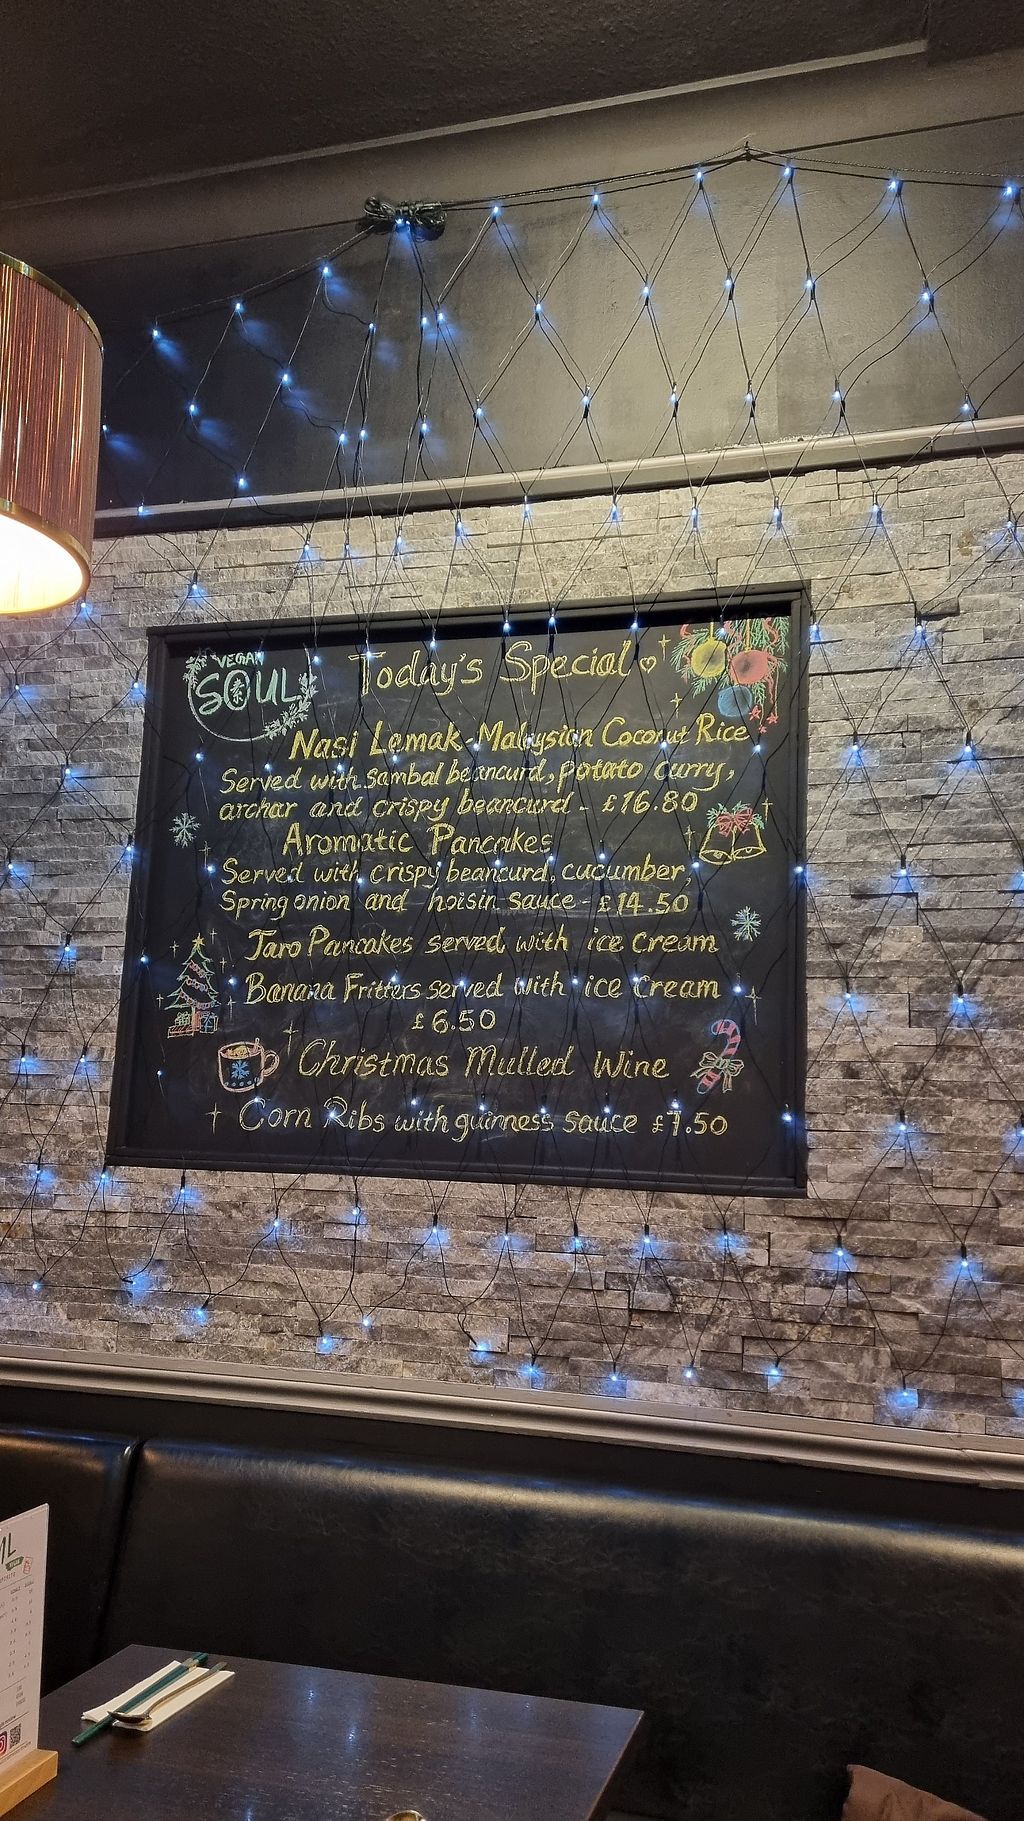 VEGAN
SOUL
Today's Special
Nasi Lemak - Malaysian Coconut Rice
Served with sambal beancurd, potato curry,
archar and crispy beancurd - £16.80
Aromatic Pancakes
Served with crispy beancurd, cucumber,
Spring onion and hoisin sauce - £14.50
Taro Pancakes served with ice cream
Banana Fritters served with ice cream
£6.50
Christmas Mulled Wine
Corn Ribs with guinness sauce £7.50